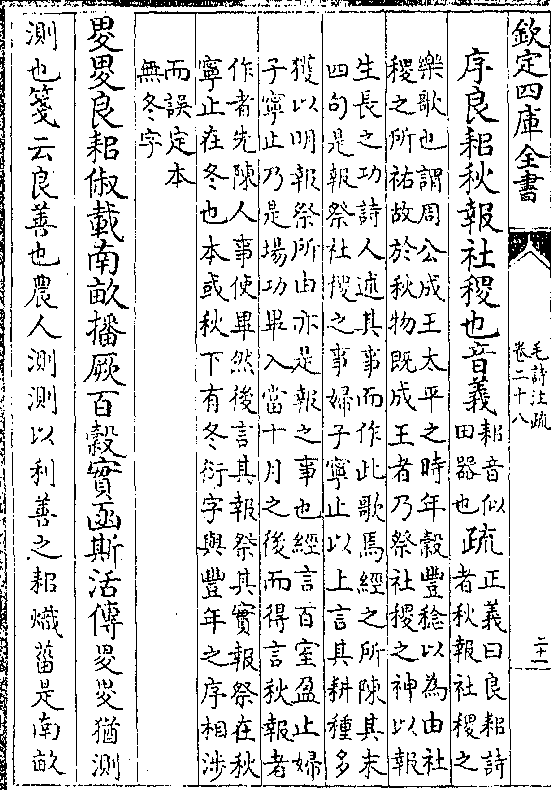 欽定四庫全書
毛詩注疏
卷二十八
二十一
序良耜秋報社稷也音義
耜音似
田器也
疏
正義曰良耜詩
者秋報社稷之
樂歌也謂周公成王太平之時年穀豐稔以為由社
稷之所祐故於秋物既成王者乃祭社稷之神以報
生長之功詩人述其事而作此歌焉經之所陳其末
四句是報祭社稷之事婦子寧止以上言其耕種多
獲以明報祭所由亦是報之事也經言百室盈止婦
子寧止乃是場功畢入當十月之後而得言秋報者
作者先陳人事使畢然後言其報祭其實報祭在秋
寧止在冬也本或秋下有冬衍字與豐年之序相涉
而誤定本
無冬字
畟畟良耜俶載南畝播厥百穀實函斯活傳畟畟猶測
測也箋云良善也農人測測以利善之耜熾菑是南畝